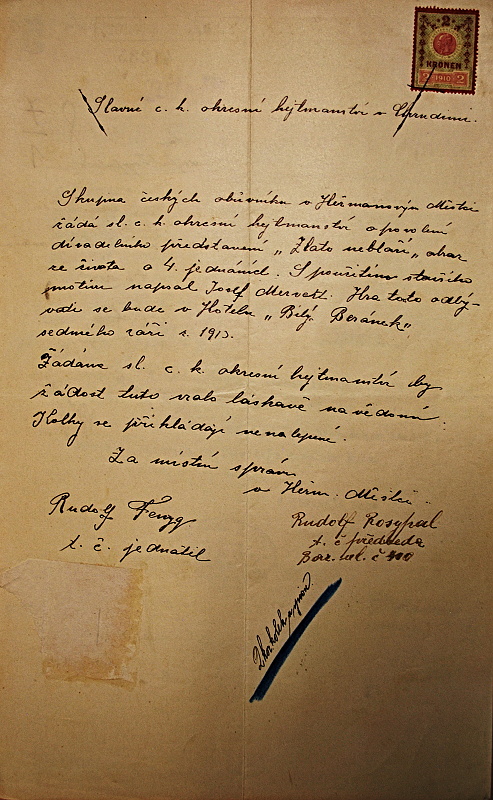 2
KRONEN
2 1910 2
Slavné c. k. okresní hejtmanství v Chrudimi.
Skupina českých obuvníků v Heřmanovým Městci
žádá sl. c. k. okresní hejtmanství o povolení
divadelního představení „Zlato neblaží" obraz
ze života o 4. jednáních. S použitím staršího
motivu napsal Josef
Hra tato odbý-
vati se bude v Hotelu „Bílý Beránek"
sedmého září r. 1913.
Žádáme sl. c. k. okresní hejtmanství aby
žádost tuto vzalo láskavě na vědomí.
Kolky se přikládají nenalepené.
Za místní správu
v Heřm. Městci.
Rudolf
t. č. jednatel
Rudolf Rosypal
t. č. předseda
č